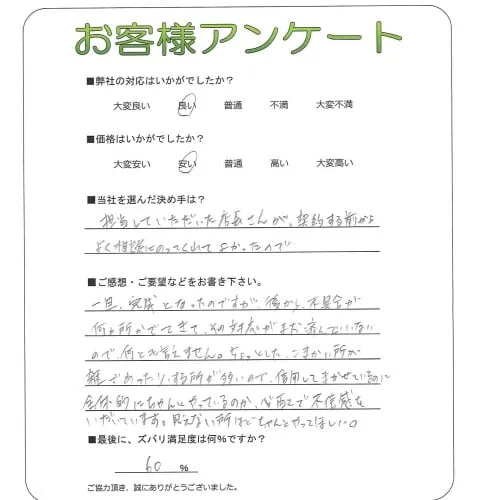 お客様アンケート
■弊社の対応はいかがでしたか?
大変良い 良い 普通 不満 大変不満
■価格はいかがでしたか?
大変安い 安い 普通 高い 大変高い
■当社を選んだ決め手は?
担当していただいた店長さんが、契約する前から
よく相談にのってくれてよかったので
■ご感想・ご要望などをお書き下さい。
一旦、完成となったのですが、後から、不具合が
何ヶ所かでてきて、その対応がまだ済んでいない
ので、何とも言えません。ちょっとした、こまかい所が
雑であったりする所が多いので、信用してまかせているのに
全体的にちゃんとやっているのか、心配で不信感を
いだいています。見えない所ほどちゃんとやってほしい。
■最後に、ズバリ満足度は何%ですか?
60 %
ご協力頂き、誠にありがとうございました。